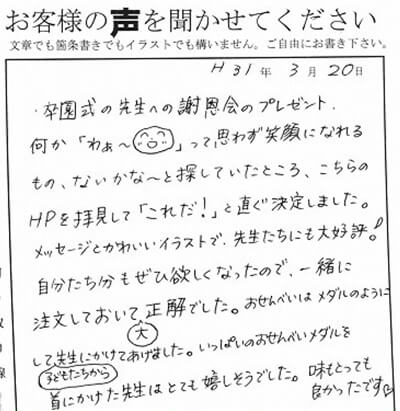 お客様の声を聞かせてください
文章でも箇条書きでもイラストでも構いません。ご自由にお書き下さい。
H31年 3月 20日
・卒園式の先生への謝恩会のプレゼント．
何か「わぁ〜」って思わず笑顔になれる
もの、ないかな〜と探していたところ、こちらの
HPを拝見して「これだ！」と直ぐ決定しました。
メッセージとかわいいイラストで、先生たちにも大好評！
自分たち分もぜひ欲しくなったので、一緒に
注文しておいて大正解でした。おせんべいは メダルのように
して先生にかけてあげました。いっぱいのおせんべいメダルを
子どもたちから
首にかけた先生はとても嬉しそうでした。味もとっても
良かったです